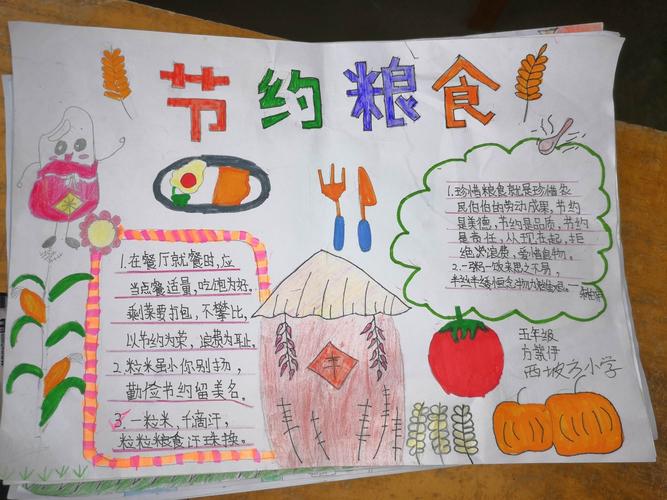 节约粮食
1.在餐厅就餐时,应
当点餐适量,吃饱为好,
剩菜要打包,不攀比,
以节约为荣,浪费为耻。
2.粒米虽小你别扬,
勤俭节约留美名。
3.一粒米,千滴汗,
粒粒粮食汗珠换。
1.珍惜粮食就是珍惜农
民伯伯的劳动成果,节约
是美德,节约是品质,节约
是责任,从现在起,拒
绝浪费,爱惜食物。
2.一粥一饭来思之不易,
半丝半缕恒念物力维艰。
丰
五年级
西坡 小学